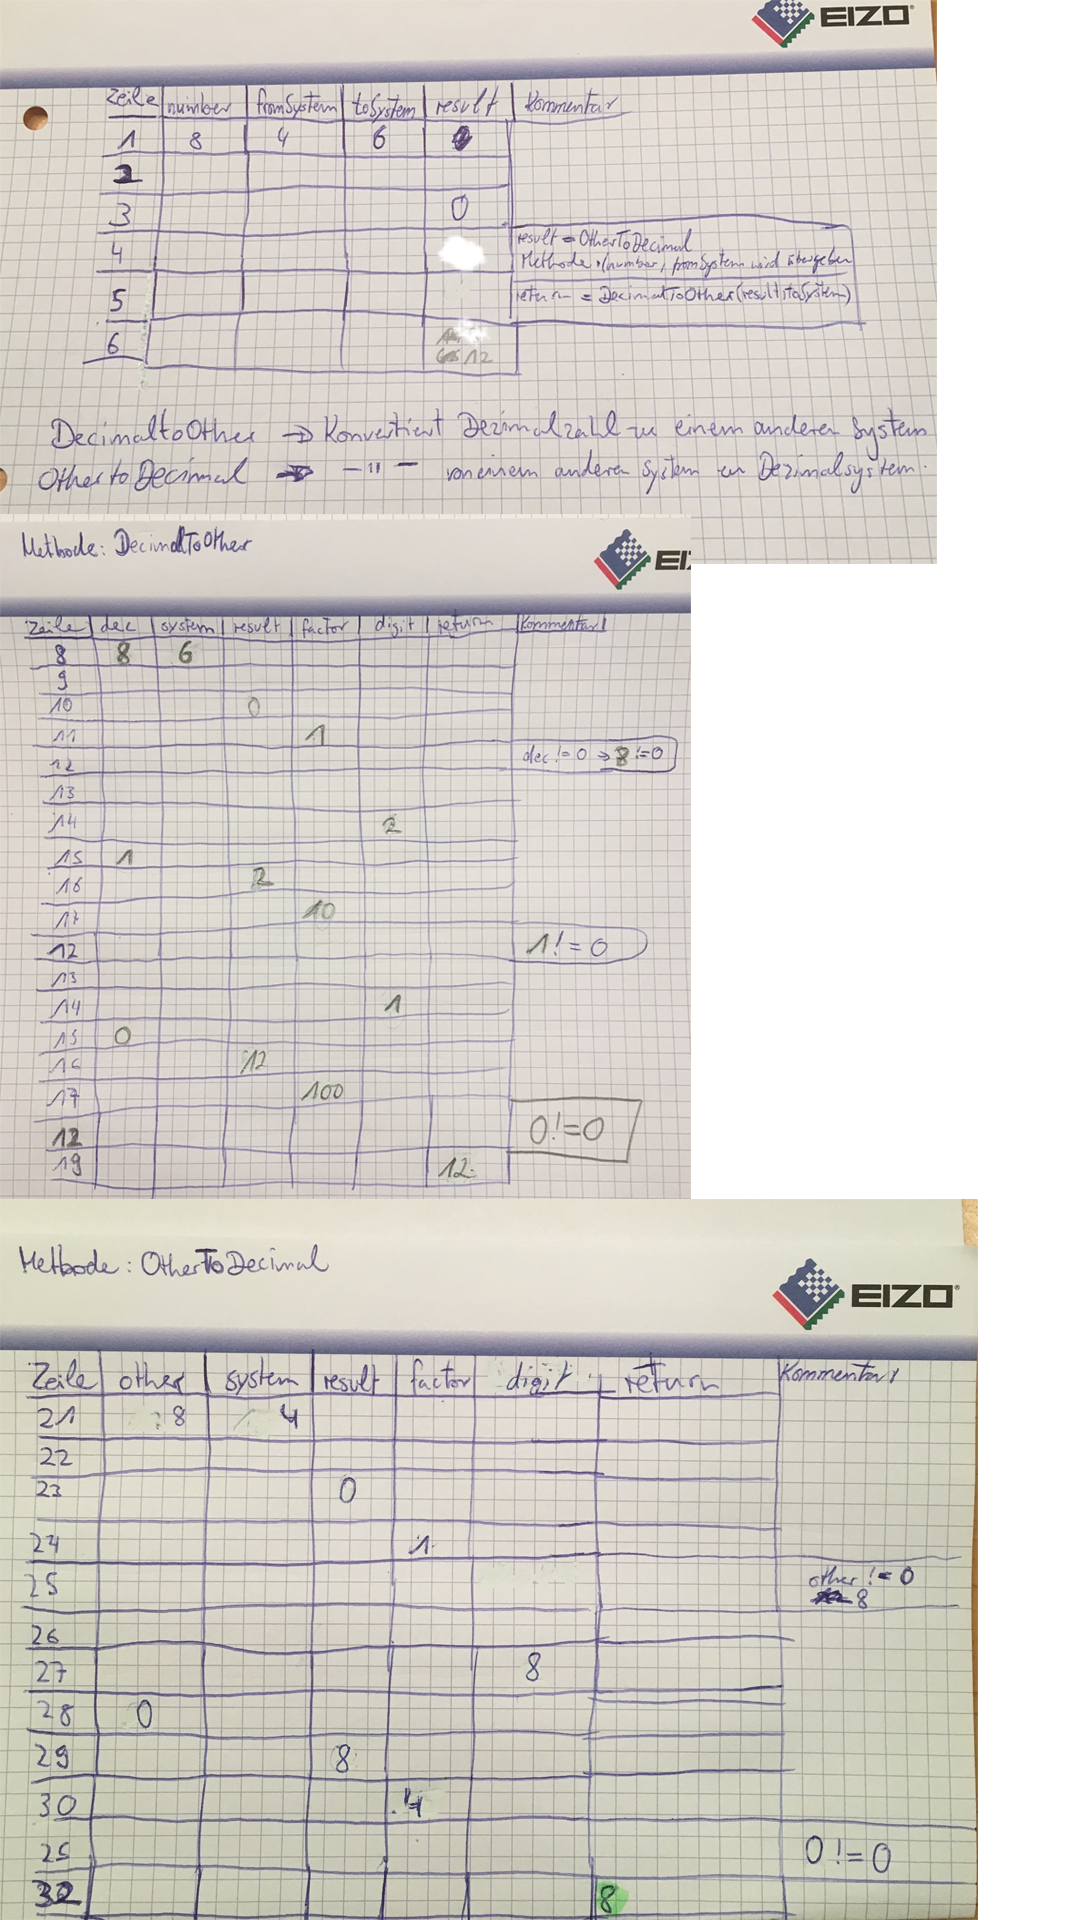 EIZO
Zeile number fromSystem toSystem result Kommentar
1 8 4 6
2
3 0
4 result = OtherToDecimal
Methode (number, fromSystem wird übergeben
5 return = DecimalToOther(result, toSystem)
6 12
DecimaltoOther → Konvertiert Dezimalzahl zu einem anderen System
OthertoDecimal → -"- von einem anderen System zu Dezimalsystem.
Methode: DecimalToOther
EIZ
Zeile dec system result factor digit return Kommentar
8 8 6
9
10 0
11 1
12 dec != 0 → 8 != 0
13
14 2
15 1
16 2
17 10
12 1 != 0
13
14 1
15 0
16 12
17 100
12 0 != 0
19 12
Methode: OtherToDecimal
EIZO
Zeile other system result factor digit return Kommentar
21 8 4
22
23 0
24 1
25 other != 0
8
26
27 8
28 0
29 8
30 4
25 0 != 0
32 8